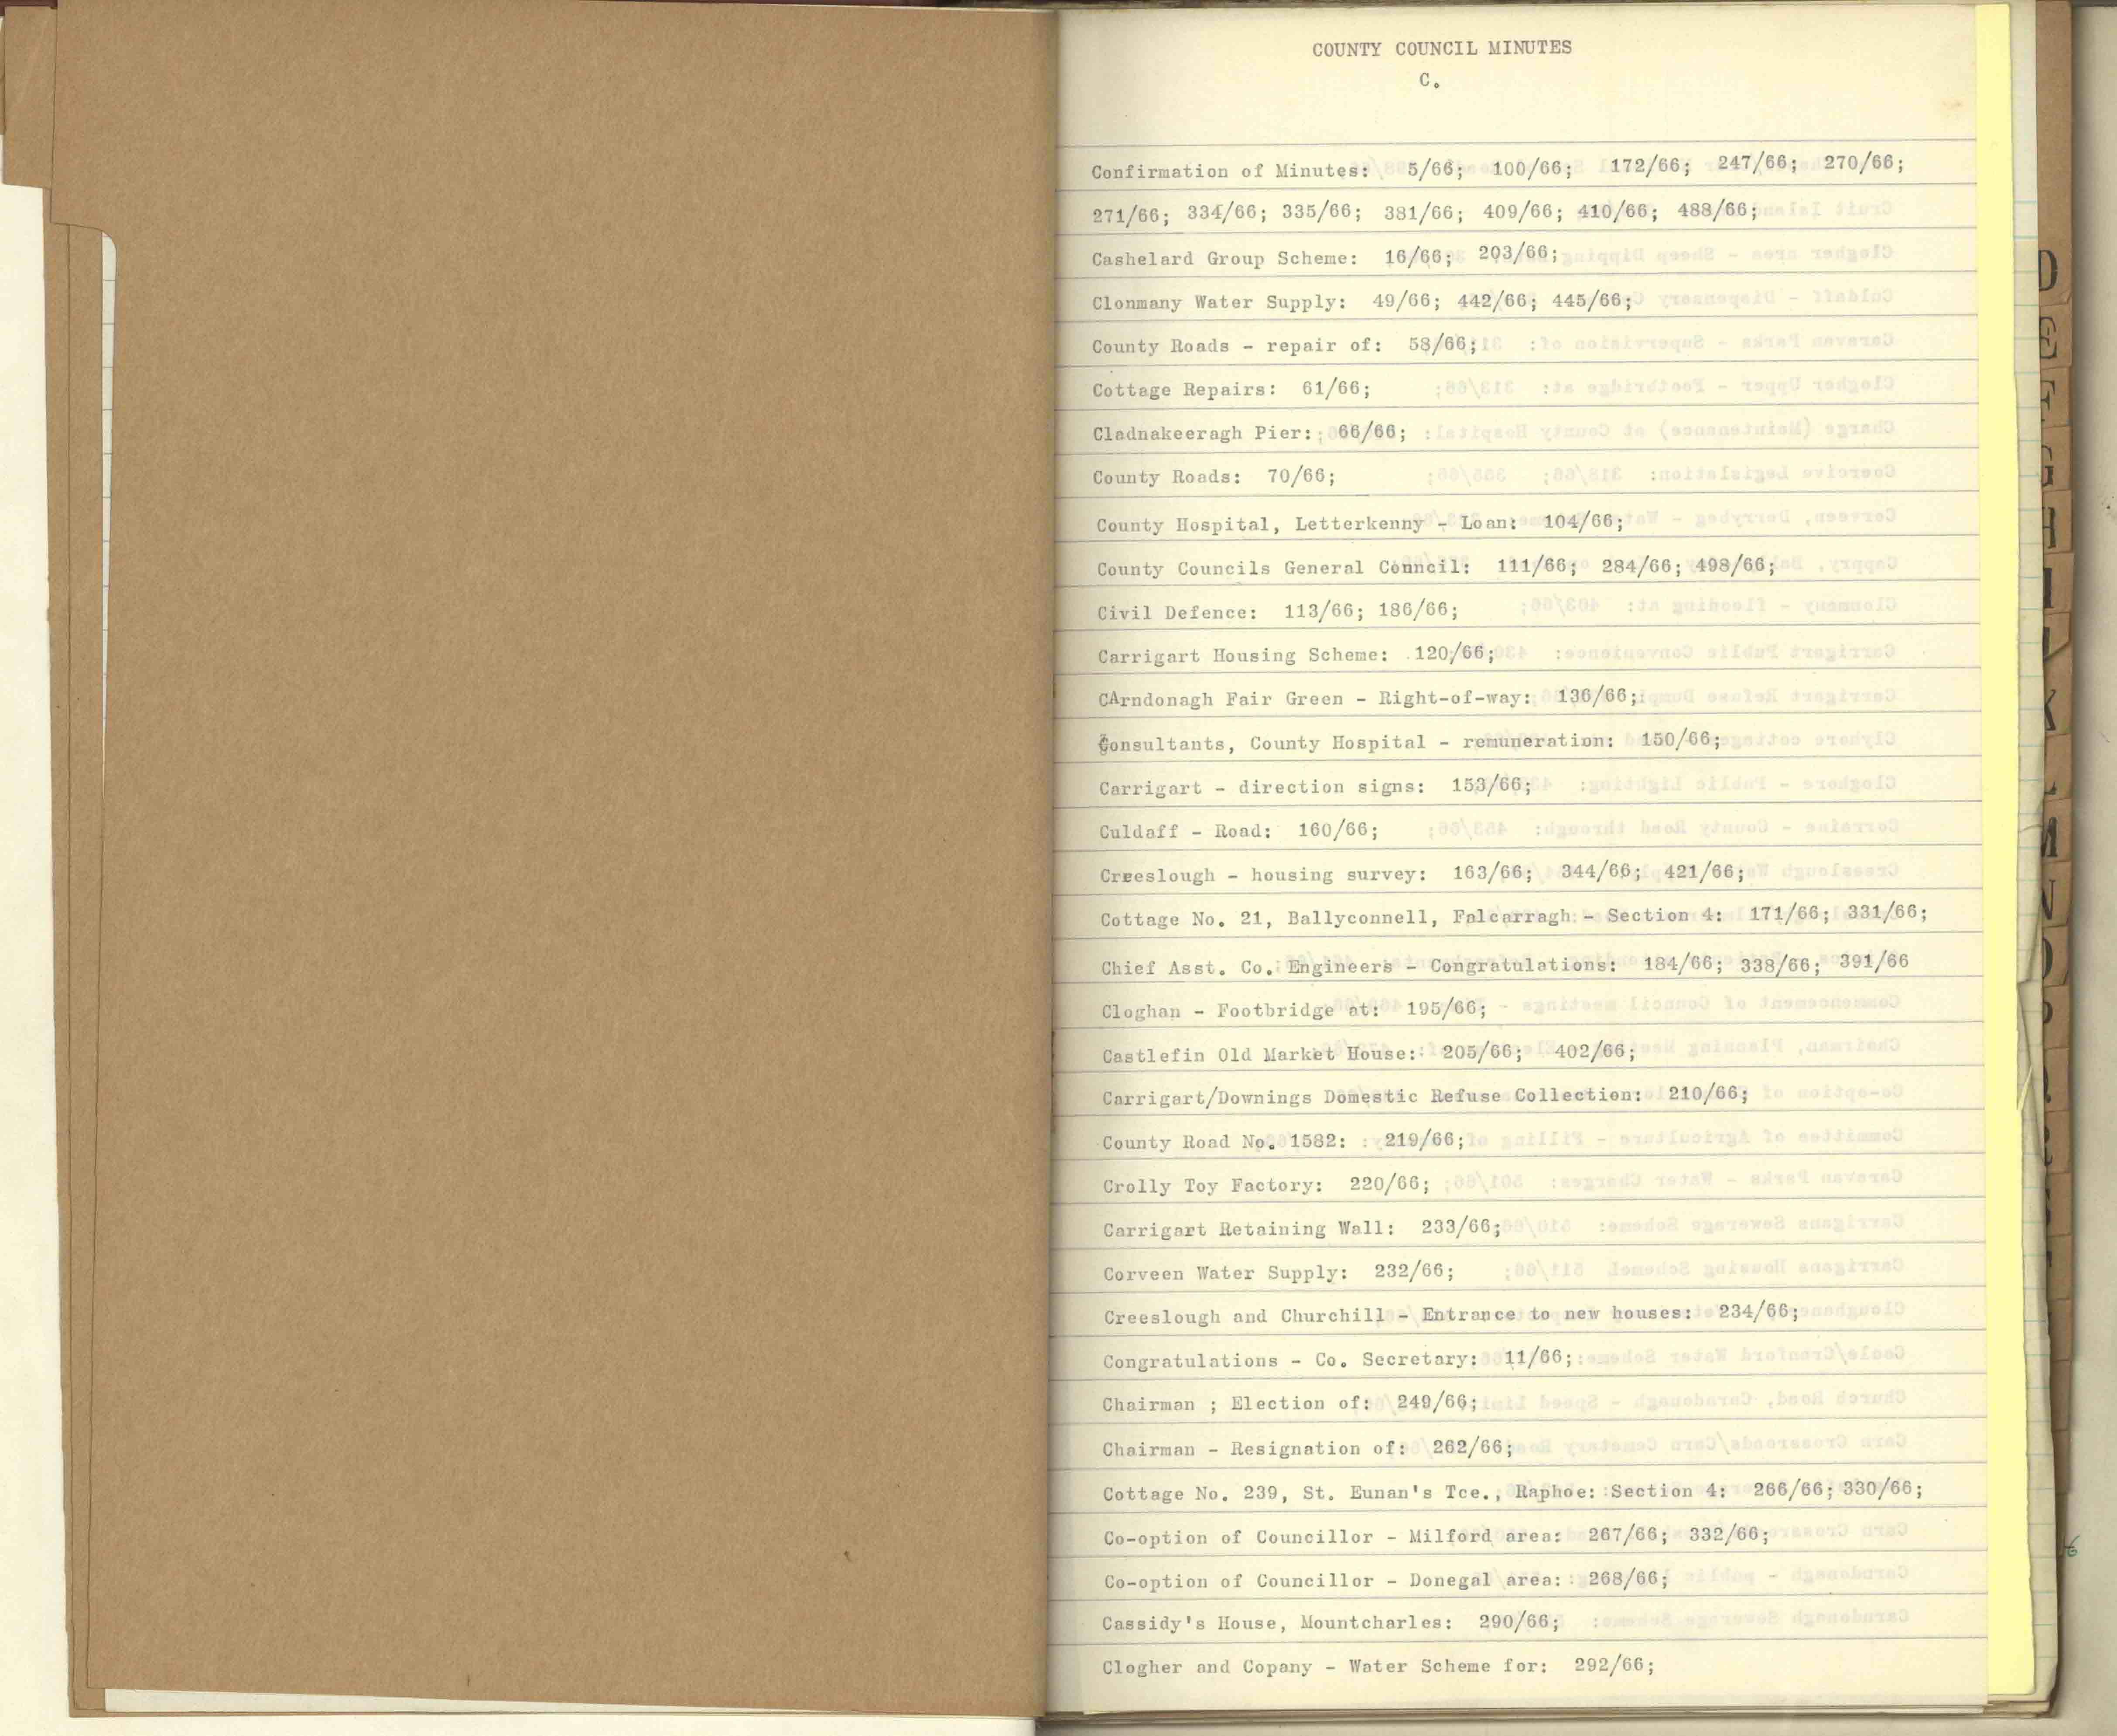 COUNTY COUNCIL MINUTES
C.
Confirmation of Minutes: 5/66; 100/66; 172/66; 247/66; 270/66;
271/66; 334/66; 335/66; 381/66; 409/66; 410/66; 488/66;
Cashelard Group Scheme: 16/66; 203/66;
Clonmany Water Supply: 49/66; 442/66; 445/66;
County Roads - repair of: 58/66;
Cottage Repairs: 61/66;
Cladnakeeragh Pier: 66/66;
County Roads: 70/66;
County Hospital, Letterkenny - Loan: 104/66;
County Councils General Council: 111/66; 284/66; 498/66;
Civil Defence: 113/66; 186/66;
Carrigart Housing Scheme: 120/66;
CArndonagh Fair Green - Right-of-way: 136/66;
Consultants, County Hospital - remuneration: 150/66;
Carrigart - direction signs: 153/66;
Culdaff - Road: 160/66;
Creeslough - housing survey: 163/66; 344/66; 421/66;
Cottage No. 21, Ballyconnell, Falcarragh - Section 4: 171/66; 331/66;
Chief Asst. Co. Engineers - Congratulations: 184/66; 338/66; 391/66
Cloghan - Footbridge at: 195/66;
Castlefin Old Market House: 205/66; 402/66;
Carrigart/Downings Domestic Refuse Collection: 210/66;
County Road No. 1582: 219/66;
Crolly Toy Factory: 220/66;
Carrigart Retaining Wall: 233/66;
Corveen Water Supply: 232/66;
Creeslough and Churchill - Entrance to new houses: 234/66;
Congratulations - Co. Secretary: 11/66;
Chairman ; Election of: 249/66;
Chairman - Resignation of: 262/66;
Cottage No. 239, St. Eunan's Tce., Raphoe: Section 4: 266/66; 330/66;
Co-option of Councillor - Milford area: 267/66; 332/66;
Co-option of Councillor - Donegal area: 268/66;
Cassidy's House, Mountcharles: 290/66;
Clogher and Copany - Water Scheme for: 292/66;
D
E
F
G
H
I
J
K
L
M
N
O
P
Q
R
S